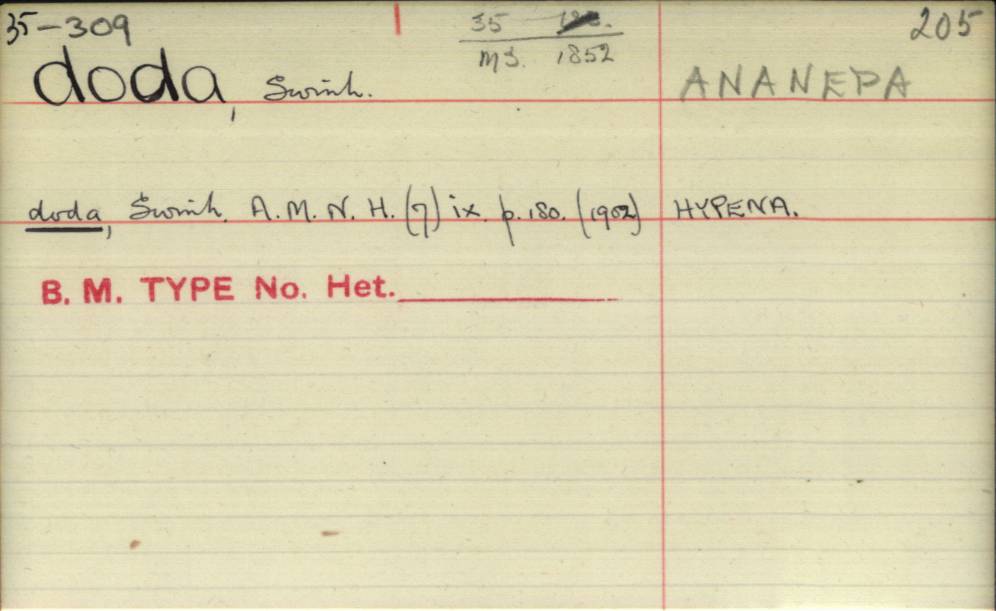 35-309
35
205
MS. 1852
doda, Swinh. ANANEPA
doda, Swinh. A.M.N.H. (7) ix. p. 180. (1902) HYPENA.
B. M. TYPE No. Het.